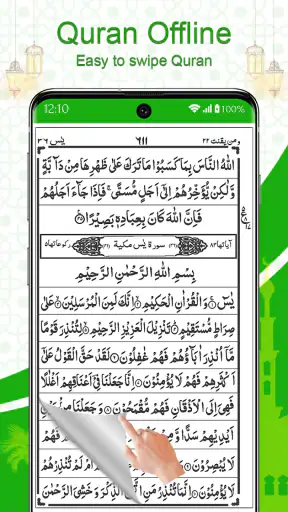 Quran Offline
Easy to swipe Quran
12:10
100%
ومن يقنت ٢٢ ٦١١ يٰسٓ ٣٦
اللهُ النَّاسَ بِمَا كَسَبُوْا مَا تَرَكَ عَلٰى ظَهْرِهَا مِنْ دَآبَّةٍ
وَّلٰكِنْ يُّؤَخِّرُهُمْ اِلٰٓى اَجَلٍ مُّسَمًّى ۚ فَاِذَا جَآءَ اَجَلُهُمْ
فَاِنَّ اللهَ كَانَ بِعِبَادِهٖ بَصِيْرًا
اٰياتها ٨٣ سورة يٰسٓ مكية ركوعاتها ٥
بِسْمِ اللهِ الرَّحْمٰنِ الرَّحِيْمِ
يٰسٓ وَالْقُرْاٰنِ الْحَكِيْمِ اِنَّكَ لَمِنَ الْمُرْسَلِيْنَ عَلٰى
صِرَاطٍ مُّسْتَقِيْمٍ تَنْزِيْلَ الْعَزِيْزِ الرَّحِيْمِ لِتُنْذِرَ قَوْمًا
مَّآ اُنْذِرَ اٰبَآؤُهُمْ فَهُمْ غٰفِلُوْنَ لَقَدْ حَقَّ الْقَوْلُ عَلٰٓى
اَكْثَرِهِمْ فَهُمْ لَا يُؤْمِنُوْنَ اِنَّا جَعَلْنَا فِيْٓ اَعْنَاقِهِمْ اَغْلٰلًا
فَهِيَ اِلَى الْاَذْقَانِ فَهُمْ مُّقْمَحُوْنَ وَجَعَلْنَا مِنْۢ بَيْنِ
اَيْدِيْهِمْ سَدًّا وَّمِنْ فَهُمْ
لَا يُبْصِرُوْنَ اَمْ لَمْ تُنْذِرْهُمْ
لَا يُؤْمِنُوْنَ اِنَّمَا تُنْذِرُ مَنِ اتَّبَعَ الذِّكْرَ وَخَشِيَ الرَّحْمٰنَ